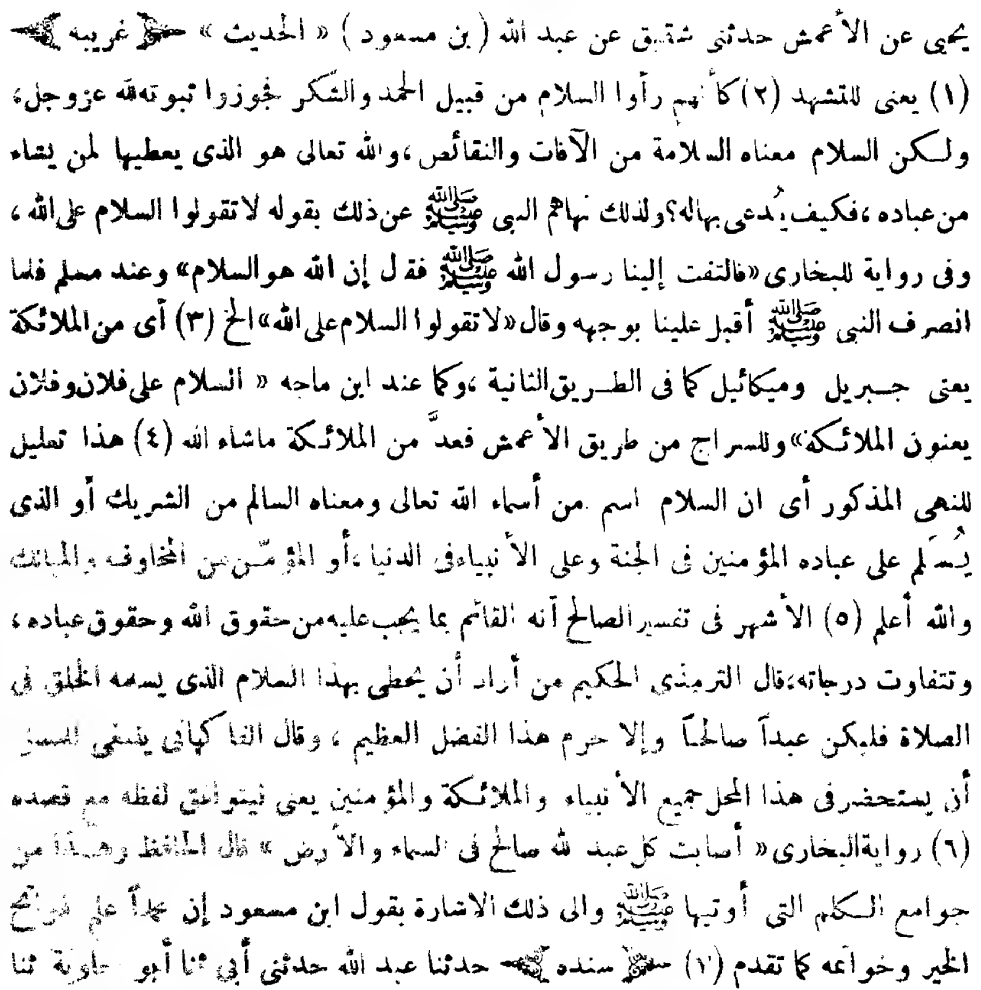 يحيى عن الأعمش حدثنى شقيق عن عبد الله (بن مسعود) « الحديث » غريبه
(١) يعنى للتشهد (٢) كأنهم رأوا السلام من قبيل الحمد والشكر فجوزوا ثبوته لله عزوجل،
ولكن السلام معناه السلامة من الآفات والنقائص ،والله تعالى هو الذى يعطيها لمن يشاء
من عباده ،فكيف يُدعى بها له؟ولذلك نهاهم النبى ﷺ عن ذلك بقوله لا تقولوا السلام على الله ،
وفى رواية للبخارى «فالتفت إلينا رسول الله ﷺ فقال إن الله هو السلام» وعند مسلم فلما
انصرف النبى ﷺ أقبل علينا بوجهه وقال «لا تقولوا السلام على الله» الخ (٣) أى من الملائكة
يعنى جبريل وميكائيل كما فى الطريق الثانية ،وكما عند ابن ماجه « السلام على فلان وفلان
يعنون الملائكة» وللسراج من طريق الأعمش فعدَّ من الملائكة ماشاء الله (٤) هذا تعليل
للنهى المذكور أى ان السلام اسم من أسماء الله تعالى ومعناه السالم من الشريك أو الذى
يُسَلم على عباده المؤمنين فى الجنة وعلى الأنبياء فى الدنيا ،أو المؤمّن من المخاوف والمهالك
والله أعلم (٥) الأشهر فى تفسير الصالح أنه القائم بما يجب عليه من حقوق الله وحقوق عباده ،
وتتفاوت درجاته،قال الترمذى الحكيم من أراد أن يحظى بهذا السلام الذى يسلمه الخلق فى
الصلاة فليكن عبداً صالحاً وإلا حرم هذا الفضل العظيم ، وقال الفاكهانى ينبغى للمصلى
أن يستحضر فى هذا المحل جميع الأنبياء والملائكة والمؤمنين يعنى ليتوافق لفظه مع قصده
(٦) رواية البخارى « أصابت كل عبد لله صالح فى السماء والأرض » قال الحافظ وهذا من
جوامع الكلم التى أوتيها ﷺ والى ذلك الاشارة بقول ابن مسعود إن محمداً علم فواتح
الخير وخواتمه كما تقدم (٧) سنده حدثنا عبد الله حدثنى أبى ثنا أبو معاوية ثنا